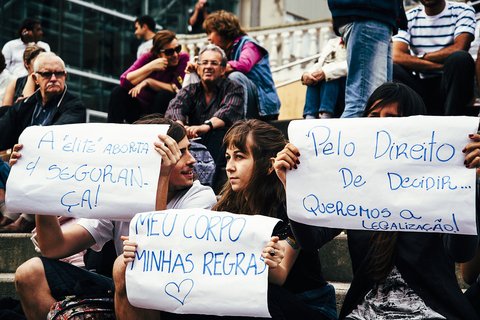 A "ELITE" ABORTA
Ç/ SEGURAN-
ÇA!
MEU CORPO
MINHAS REGRAS
PELO DIREITO
DE DECIDIR...
QUEREMOS A
LEGALIZAÇÃO!